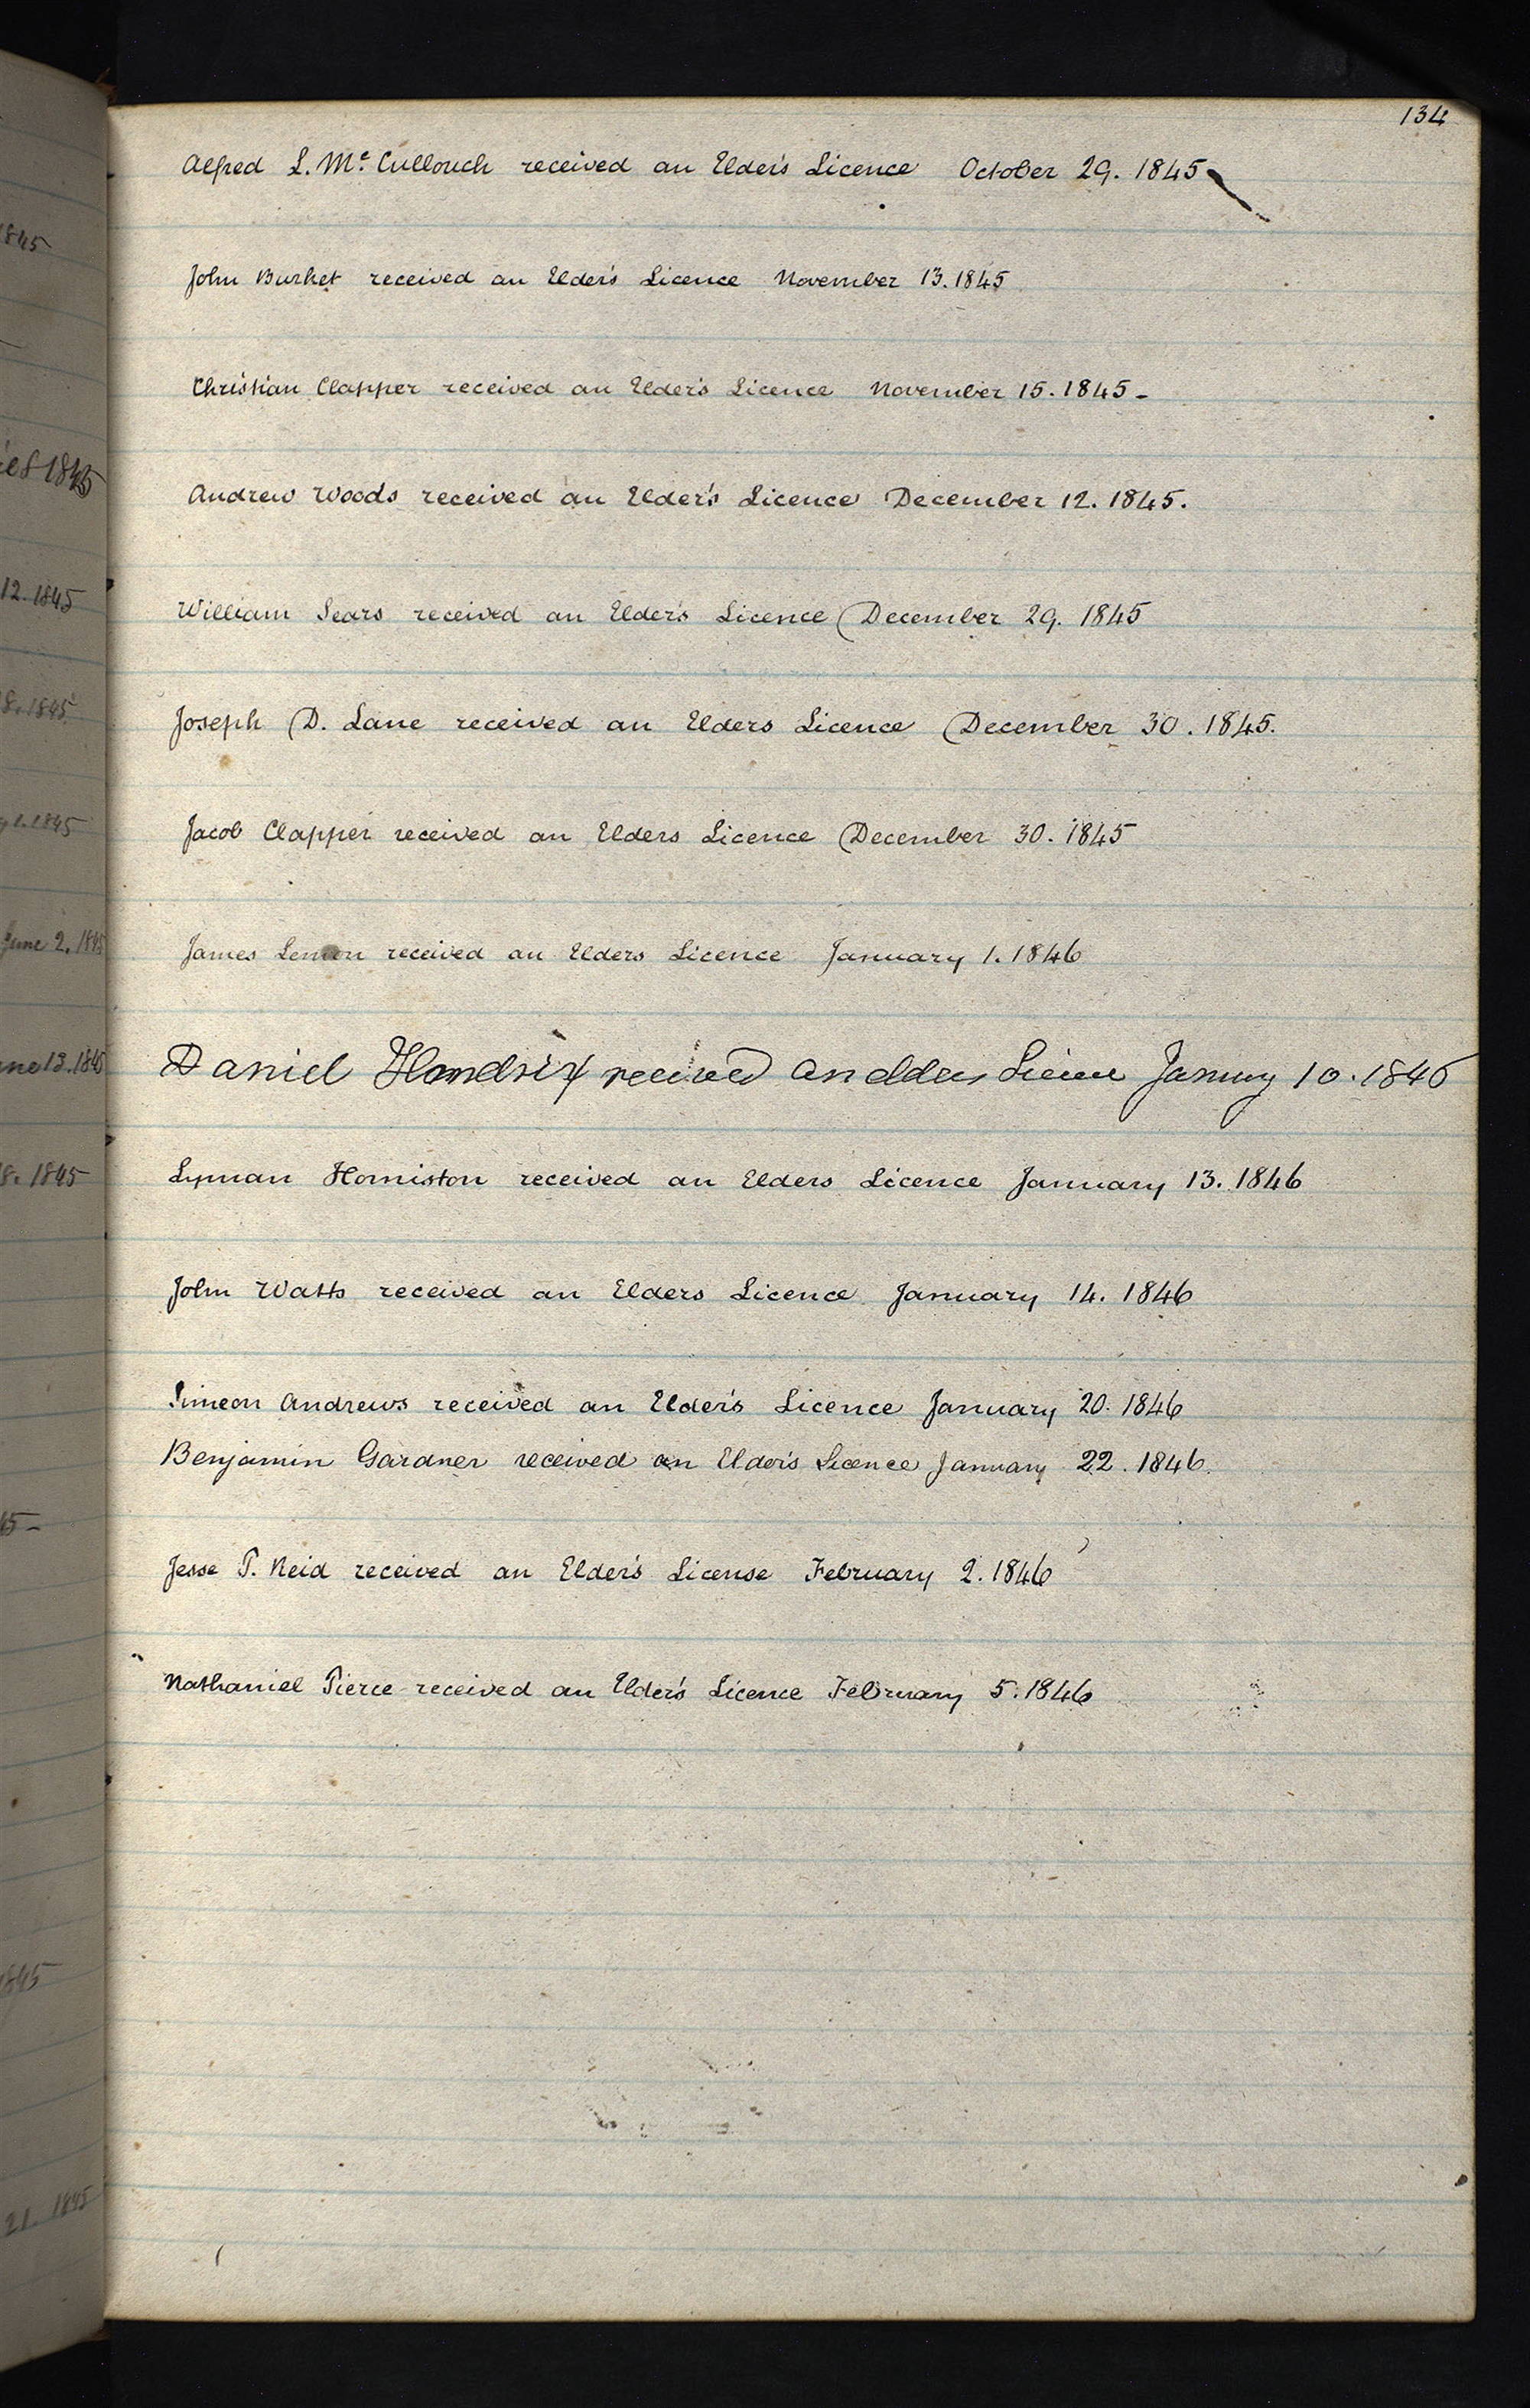 134
Alfred L. Mc. Cullouch received an Elder's Licence October 29. 1845
John Burket received an Elder's Licence November 13. 1845
Christian Clapper received an Elder's Licence November 15. 1845 -
Andrew Woods received an Elder's Licence December 12. 1845.
William Sears received an Elder's Licence December 29. 1845
Joseph D. Lane received an Elders Licence December 30. 1845.
Jacob Clapper received an Elders Licence December 30. 1845
James Lemon received an Elders Licence January 1. 1846
Daniel Hendrix received an elders January 10. 1846
Lyman Homiston received an Elders Licence January 13. 1846
John Watts received an Elders Licence January 14. 1846
Simeon Andrews received an Elder's Licence January 20. 1846
Benjamin Gardner received an Elder's Licence January 22. 1846.
Jesse P. Reid received an Elder's License February 2. 1846
Nathaniel Pierce received an Elder's Licence February 5. 1846
1845
1845
12. 1845
8. 1845
1845
June 2. 1845
13. 1845
8. 1845
45 -
1845
21. 1845